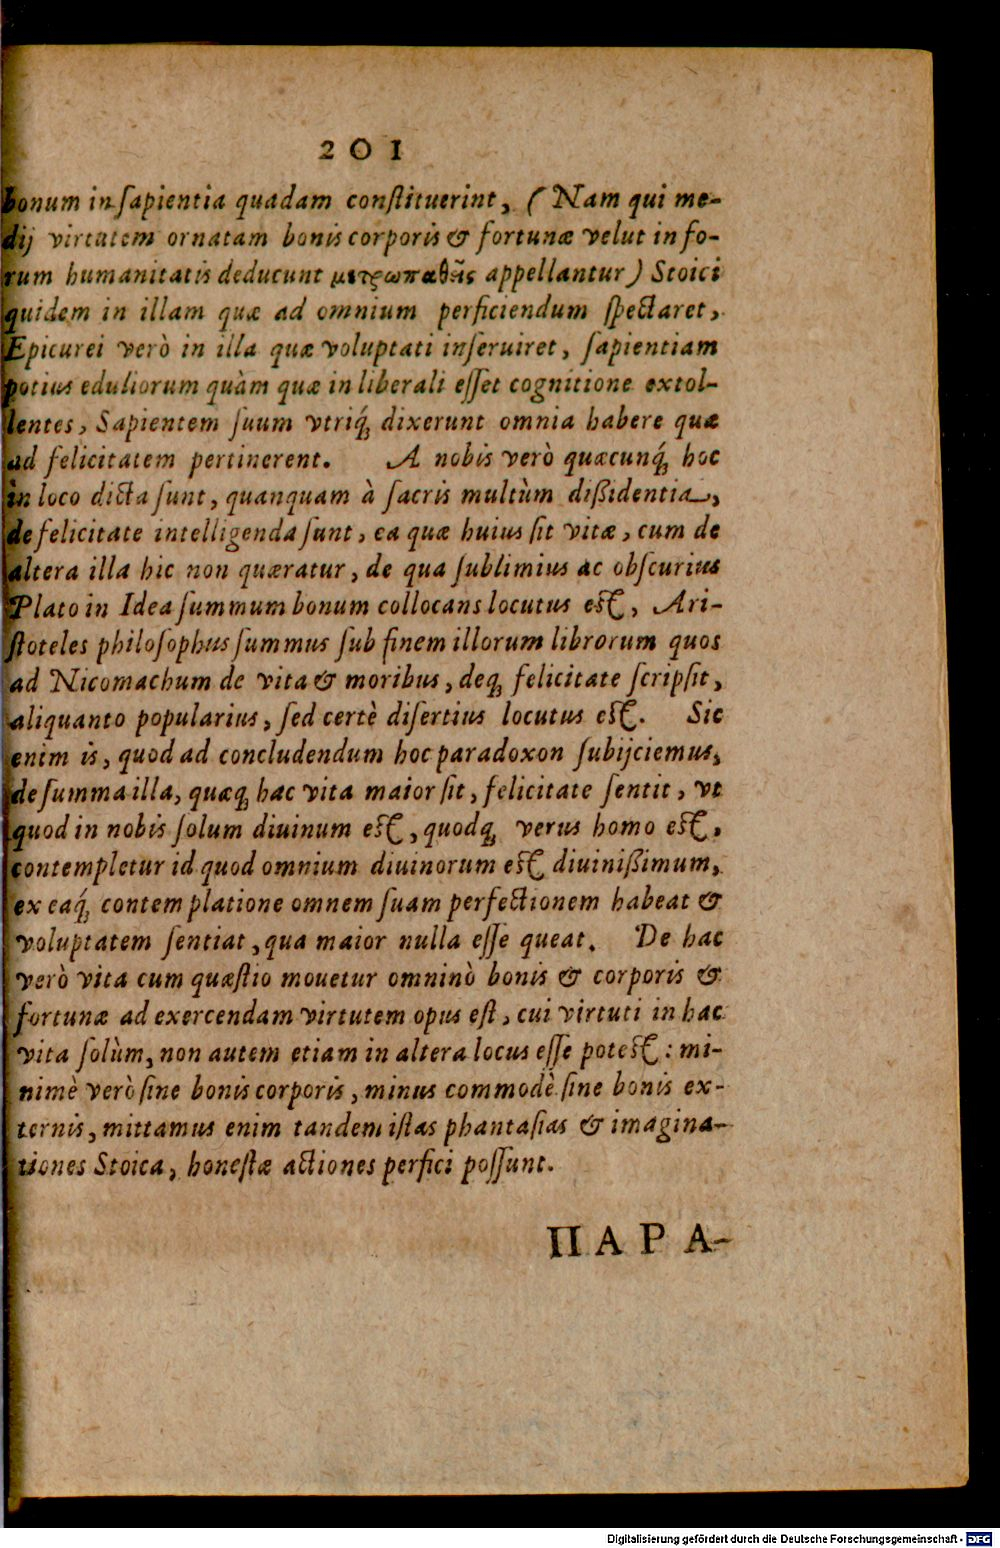 201
bonum in sapientia quadam constituerint, (Nam qui me-
dij virtutem ornatam bonis corporis & fortunæ velut in fo-
rum humanitatis deducunt μετρωπαθεῖς appellantur) Stoici
quidem in illam quæ ad omnium perficiendum spectaret,
Epicurei verò in illa quæ voluptati inseruiret, sapientiam
potius eduliorum quàm quæ in liberali esset cognitione extol-
lentes, Sapientem suum vtriq́; dixerunt omnia habere quæ
ad felicitatem pertinerent. A nobis verò quæcunq́; hoc
in loco dicta sunt, quanquam à sacris multùm dißidentia,
de felicitate intelligenda sunt, ea quæ huius sit vitæ, cum de
altera illa hic non quæratur, de qua sublimius ac obscurius
Plato in Idea summum bonum collocans locutus est, Ari-
stoteles philosophus summus sub finem illorum librorum quos
ad Nicomachum de vita & moribus, deq; felicitate scripsit,
aliquanto popularius, sed certè disertius locutus est. Sic
enim is, quod ad concludendum hoc paradoxon subijciemus,
de summa illa, quæq; hac vita maior sit, felicitate sentit, vt
quod in nobis solum diuinum est, quodq; verus homo est,
contempletur id quod omnium diuinorum est diuinißimum,
ex eaq́; contemplatione omnem suam perfectionem habeat &
voluptatem sentiat, qua maior nulla esse queat. De hac
verò vita cum quæstio mouetur omninò bonis & corporis &
fortunæ ad exercendam virtutem opus est, cui virtuti in hac
vita solùm, non autem etiam in altera locus esse potest: mi-
nimè verò sine bonis corporis, minus commodè sine bonis ex-
ternis, mittamus enim tandem istas phantasias & imagina-
tiones Stoica, honestæ actiones perfici possunt.
ΠΑΡΑ-
Digitalisierung gefördert durch die Deutsche Forschungsgemeinschaft - DFG